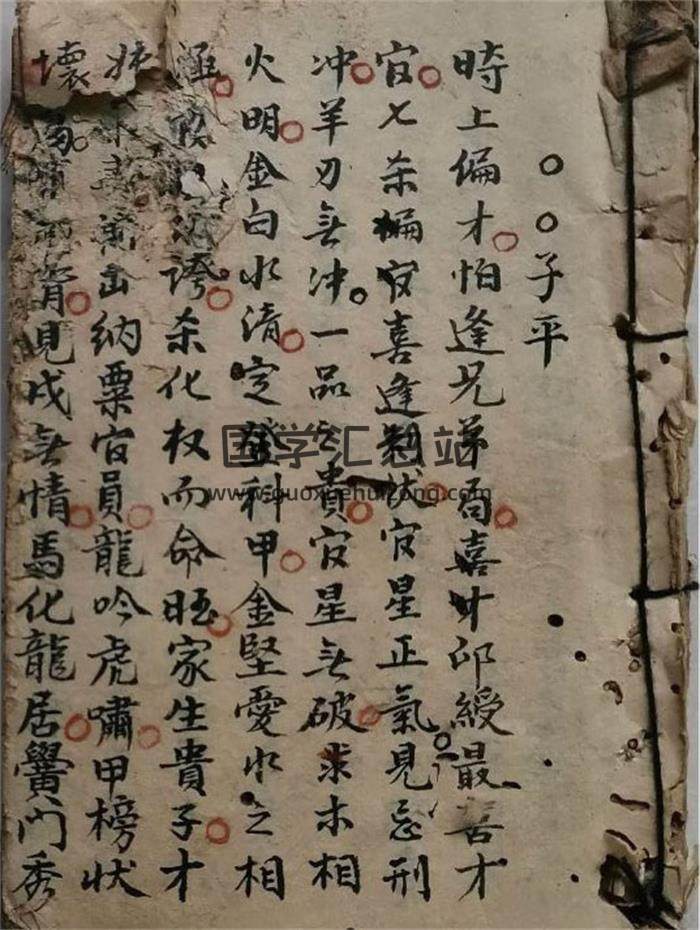 ○○子平
時上偏才怕逢兄弟局喜才印綬最喜才
官七杀偏官喜逢制伏官星正氣見忌刑
冲羊刃無冲一品之貴官星無破求木相
火明金白水清定登科甲金堅愛水之相
涵誇杀化权而命旺家生貴子才
納粟官員龍吟虎嘯甲榜状
壞見戌無情馬化龍居黌门秀
国学汇总站
www.guoxuehuizong.com